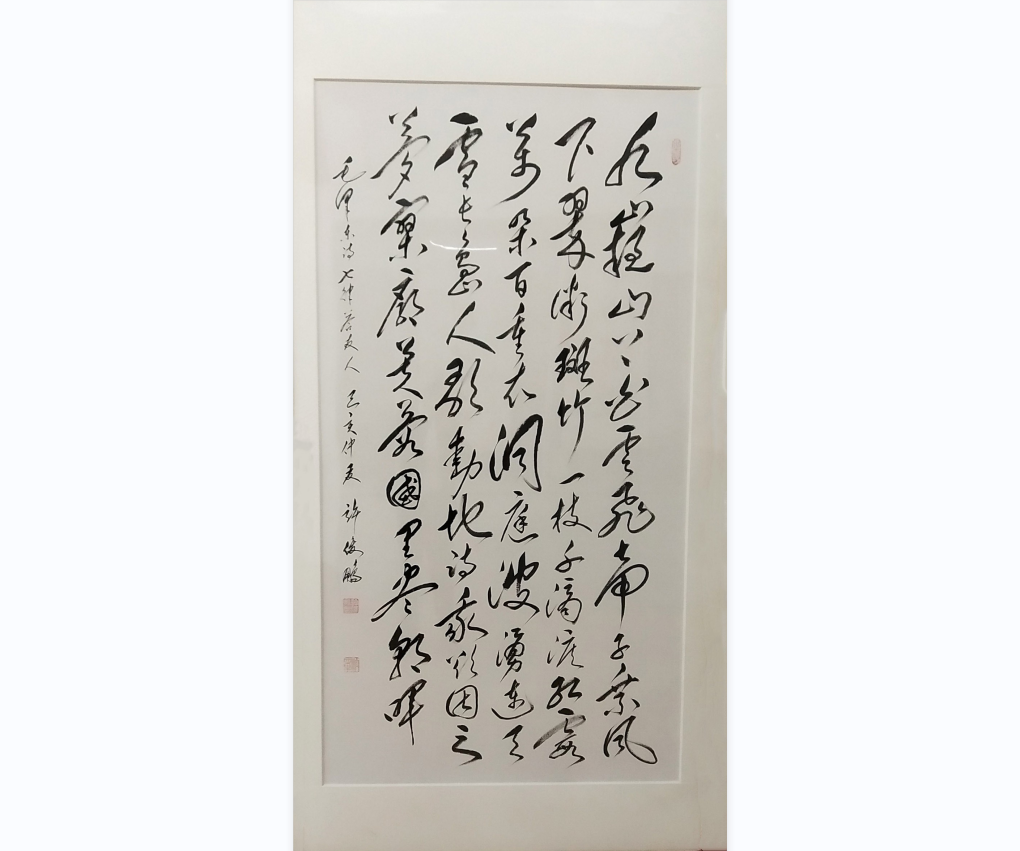 九嶷山上白雲飛帝子乘風
下翠微斑竹一枝千滴淚紅霞
萬朵百重衣洞庭波湧連天
雪長島人歌動地詩我欲因之
夢寥廓芙蓉國里盡朝暉
毛澤東詩七律答友人 己亥仲夏 許俊鵬